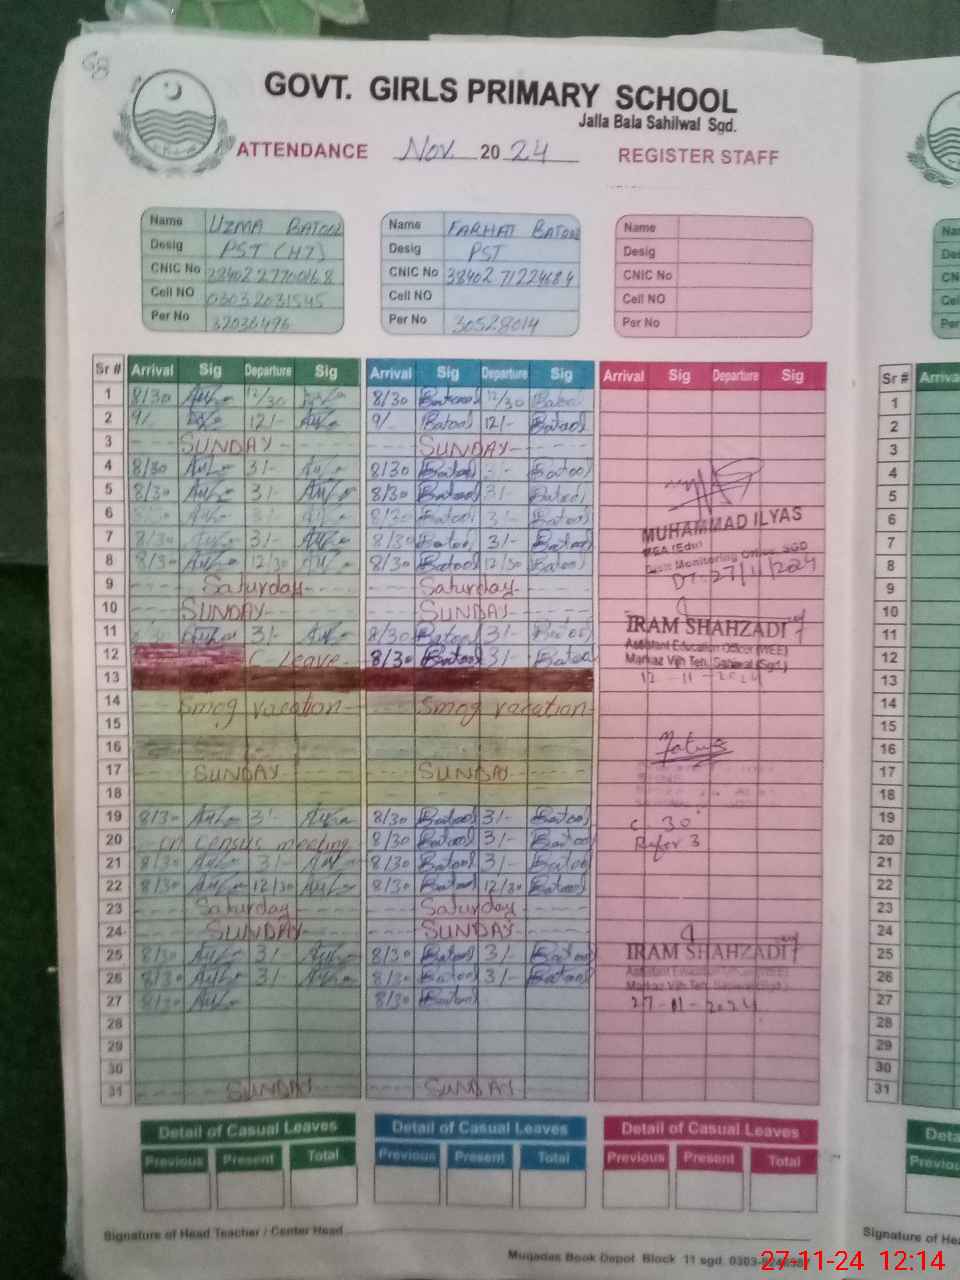 68
GOVT. GIRLS PRIMARY SCHOOL
Jalla Bala Sahilwal Sgd.
ATTENDANCE Nov. 2024 REGISTER STAFF
Name UZMA BATOOL Name FARHAT BATOOL Name
Desig PST (HT) Desig PST Desig
CNIC No CNIC No CNIC No
Cell NO 03032031545 Cell NO Cell NO
Per No Per No 30528014 Per No
Sr # Arrival Sig Departure Sig Arrival Sig Departure Sig Arrival Sig Departure Sig Sr #
1 8/30 12/30 8/30 Batool 12/30 Batool 1
2 9/- 12/- 9/- Batool 12/- Batool 2
3 SUNDAY SUNDAY 3
4 8/30 3/- 8/30 Batool Batool 4
5 8/30 3/- 8/30 Batool 3/- Batool 5
6 3/- 8/30 Batool 3/- Batool 6
MUHAMMAD ILYAS
7 8/30 3/- 8/30 Batool 3/- Batool 7
MEA (Edu)
8 8/30 12/30 8/30 Batool 12/30 Batool Monitoring Office SGD 8
DT: 27/11/2024
9 Saturday Saturday 9
10 SUNDAY SUNDAY 10
11 3/- 8/30 Batool 3/- Batool IRAM SHAHZADI 11
Assistant Education Officer (WEE)
12 C-Leave 8/30 Batool 3/- Batool Markaz Vijh Teh. Sahiwal (Sgd.) 12
13 12-11-2024 13
14 Smog vacation Smog vacation 14
15 15
16 16
17 SUNDAY SUNDAY 17
18 18
19 8/30 3/- 8/30 Batool 3/- Batool 19
20 on census meeting 8/30 Batool 3/- Batool 20
21 8/30 3/- 8/30 Batool 3/- Batool 21
22 8/30 12/30 8/30 Batool 12/30 Batool 22
23 Saturday Saturday 23
24 SUNDAY SUNDAY 24
25 8/30 3/- 8/30 Batool 3/- Batool IRAM SHAHZADI 25
Assistant Education Officer (WEE)
26 8/30 3/- 8/30 Batool 3/- Batool Markaz Vijh Teh. Sahiwal (Sgd.) 26
27 8/30 8/30 Batool 27-11-2024 27
28 28
29 29
30 30
31 SUNDAY SUNDAY 31
Detail of Casual Leaves Detail of Casual Leaves Detail of Casual Leaves
Previous Present Total Previous Present Total Previous Present Total
Signature of Head Teacher / Center Head
Muqadas Book Depot Block 11 sgd.
27-11-24 12:14